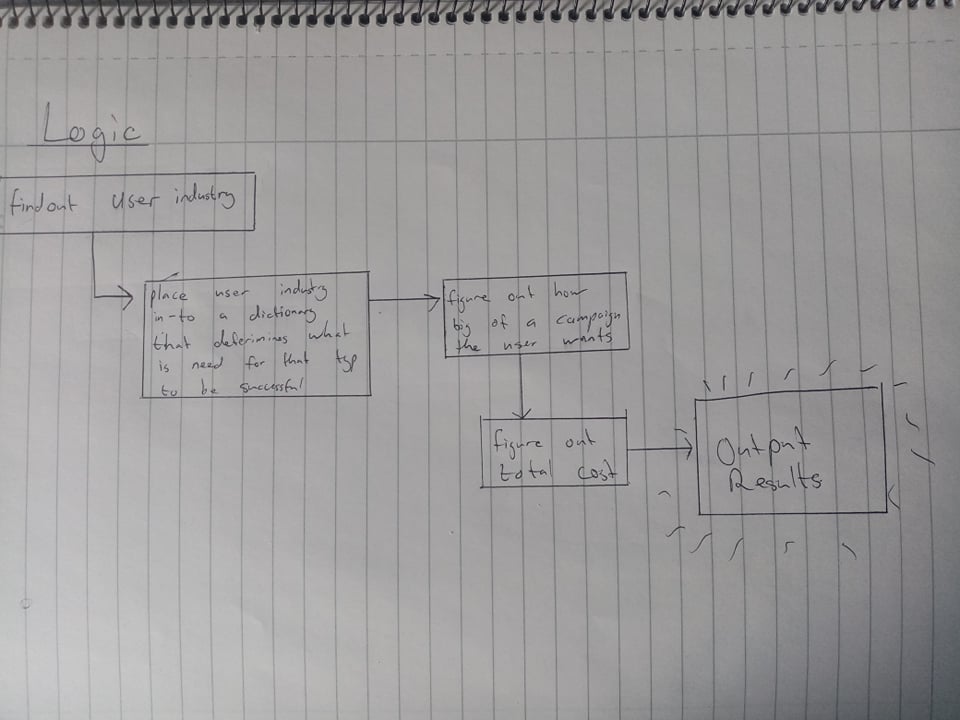 Logic
find out user industry
place user industry
in-to a dictionary
that deferimines what
is need for that typ
to be successful
figure out how
big of a campaign
the user wants
figure out
total cost
Output
Results